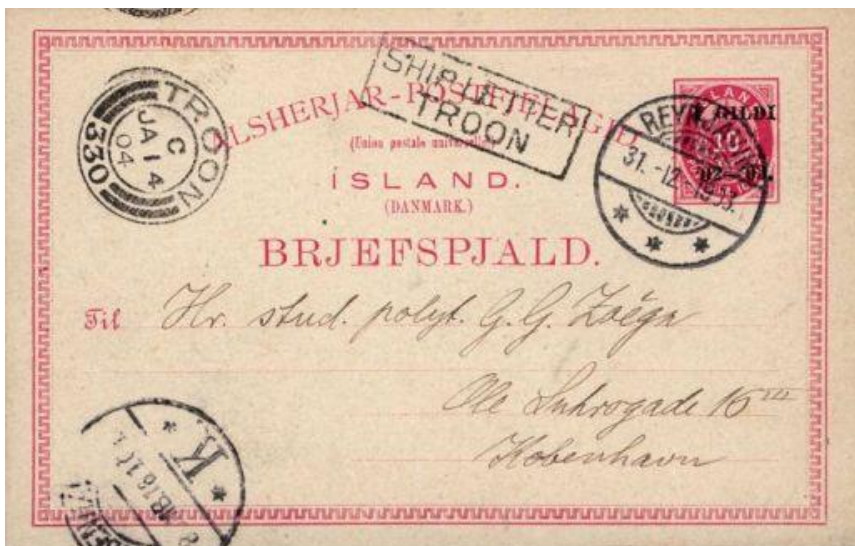 TROON
C
JA 14
04
330
SHIP LETTER
TROON
ALSHERJAR-PÓSTFJELAGIÐ.
(Union postale universelle.)
ÍSLAND.
(DANMARK.)
BRJEFSPJALD.
Í GILDI
REYKJAVÍK
31.-12.-1903.
Til Hr. stud. polyt. G. G. Zoëga
Ole Suhrsgade 16
København
K